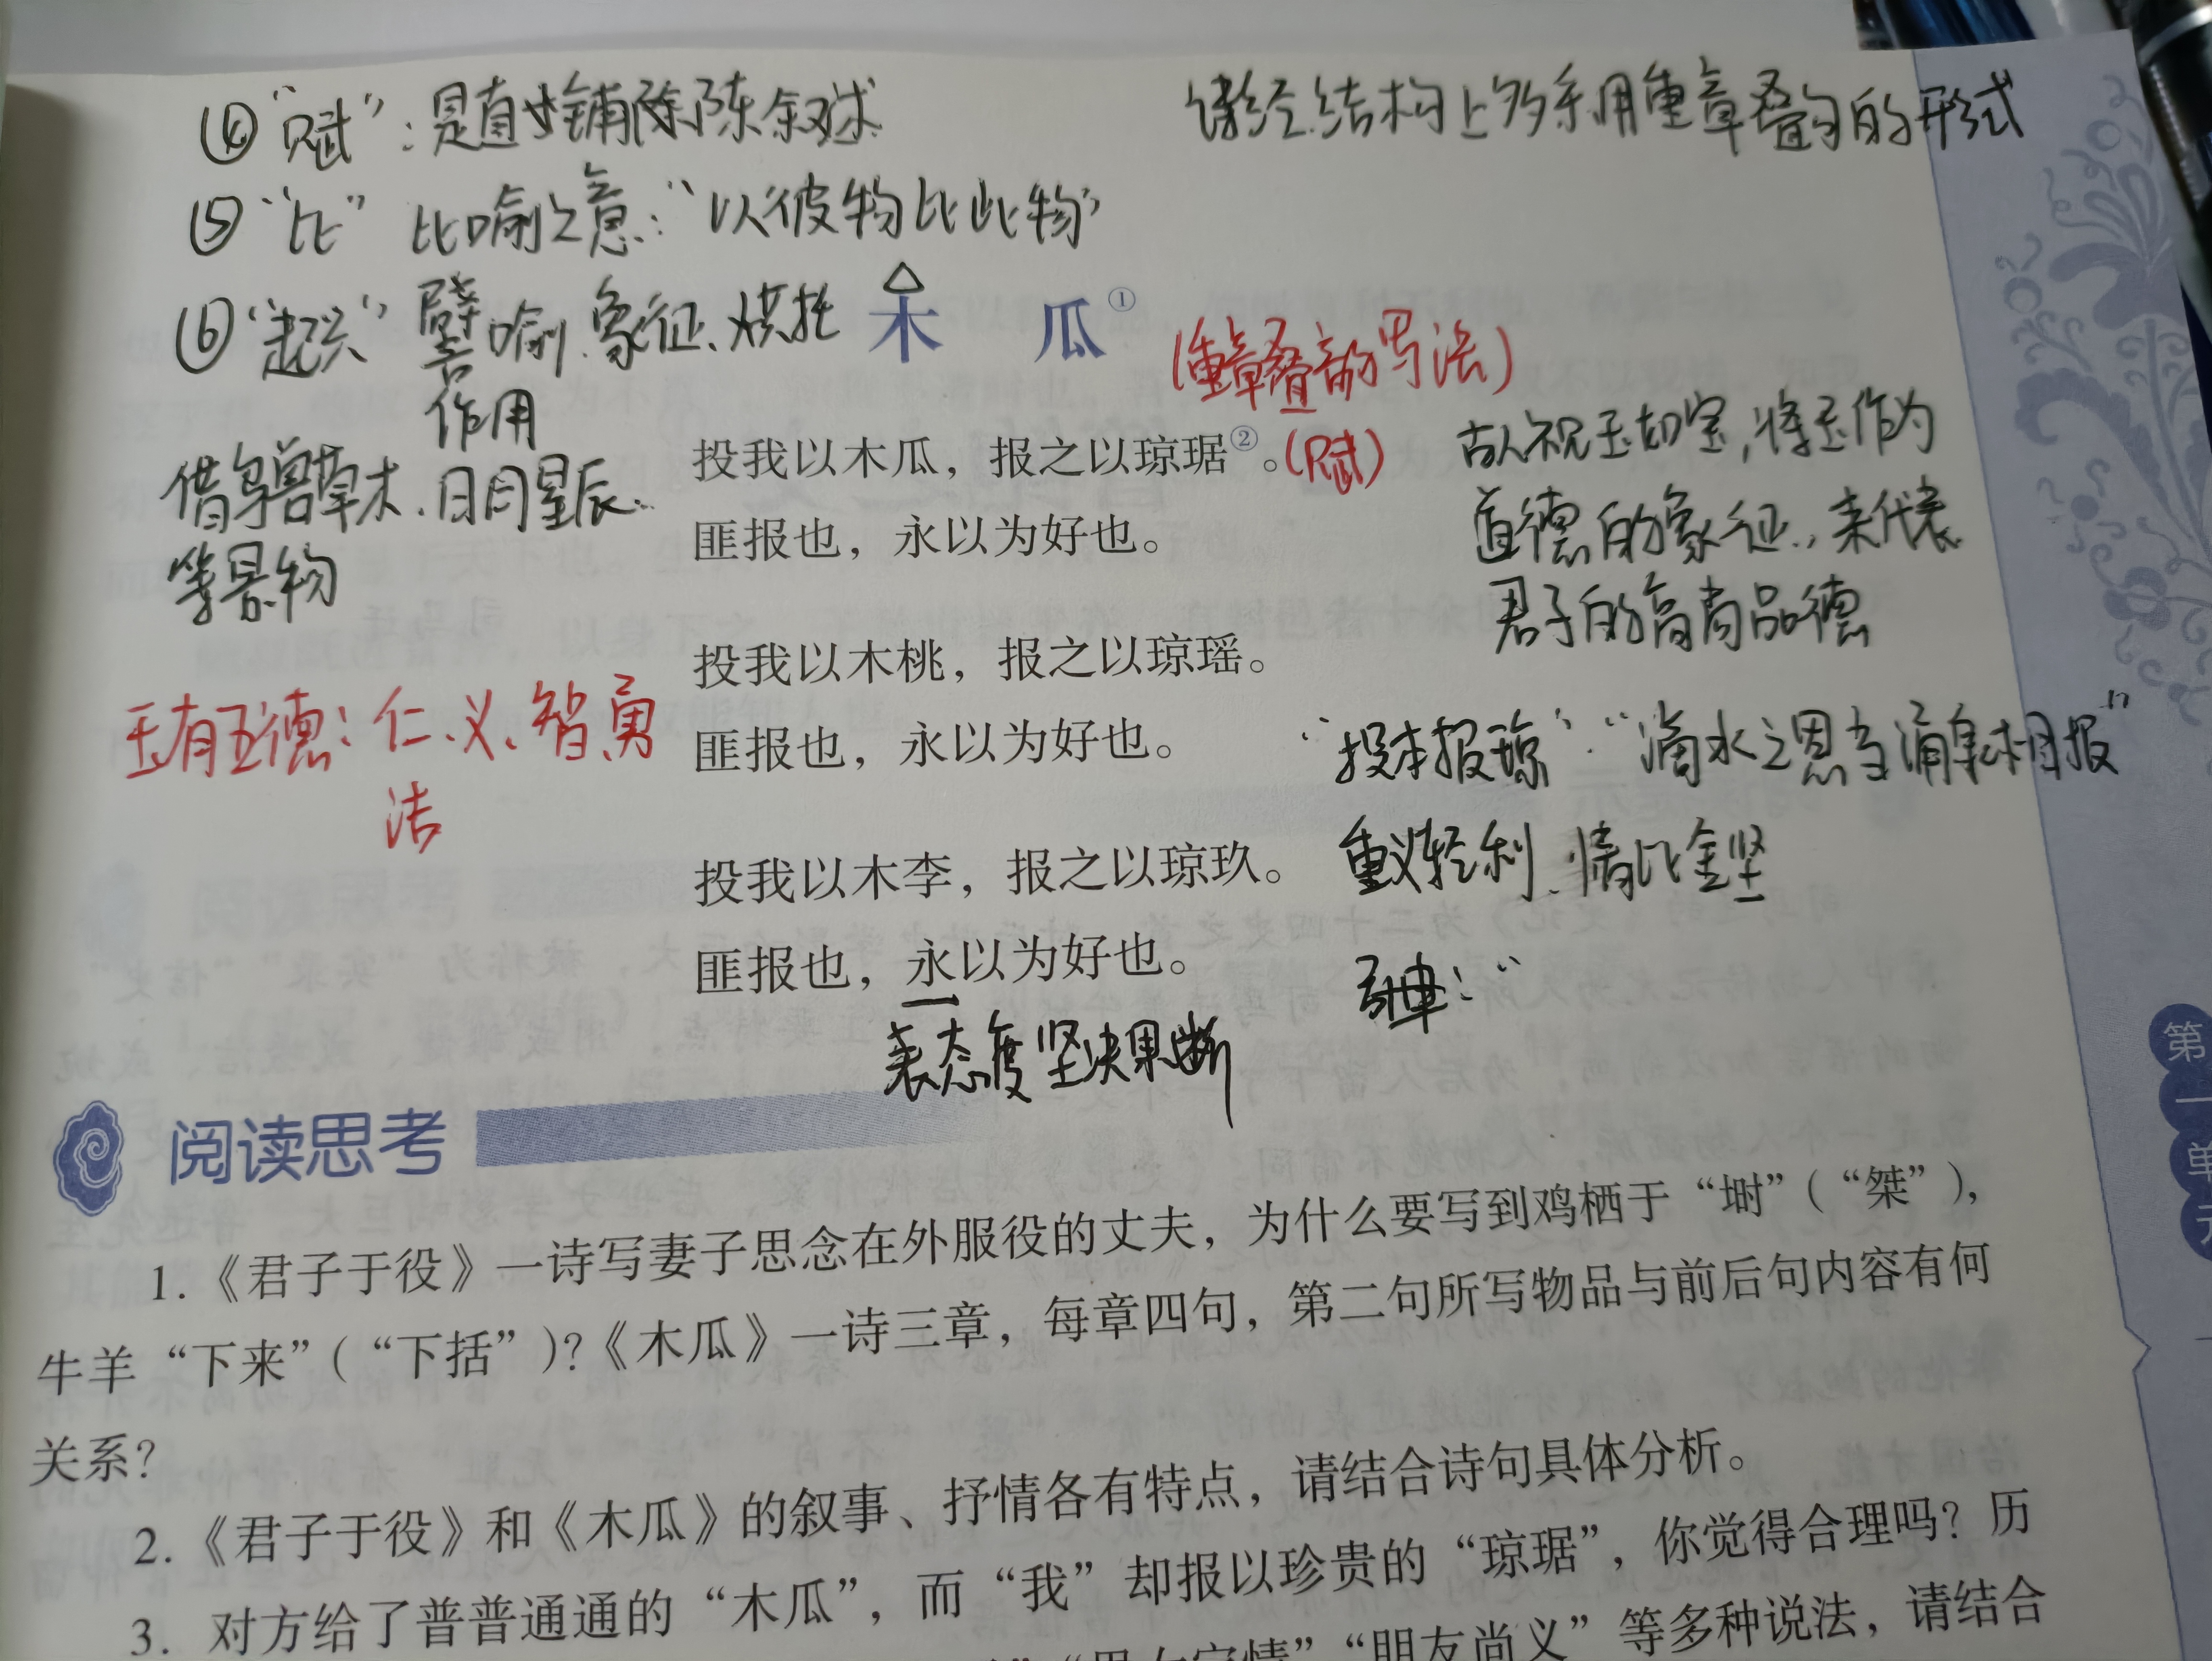 ④“赋”：是直接铺陈叙述
诗经结构上多采用重章叠句的形式
⑤“比” 比喻之意：“以彼物比此物”
⑥“起兴” 譬喻、象征、烘托
作用
木 瓜①
(重章叠韵写法)
借鸟兽草木、日月星辰
等景物
投我以木瓜，报之以琼琚②。(赋)
匪报也，永以为好也。
古人视玉如宝，将玉作为
道德的象征，来代表
君子的高尚品德
投我以木桃，报之以琼瑶。
匪报也，永以为好也。
玉有五德：仁、义、智、勇
洁
“投木报琼”“滴水之恩当涌泉相报”
投我以木李，报之以琼玖。
匪报也，永以为好也。
重义轻利、情比金坚
表态度坚决果断
阅读思考
1.《君子于役》一诗写妻子思念在外服役的丈夫，为什么要写到鸡栖于“埘”(“桀”)，
牛羊“下来”(“下括”)？《木瓜》一诗三章，每章四句，第二句所写物品与前后句内容有何
关系？
2.《君子于役》和《木瓜》的叙事、抒情各有特点，请结合诗句具体分析。
3. 对方给了普普通通的“木瓜”，而“我”却报以珍贵的“琼琚”，你觉得合理吗？历
“朋友尚义”等多种说法，请结合
第
一
单
元